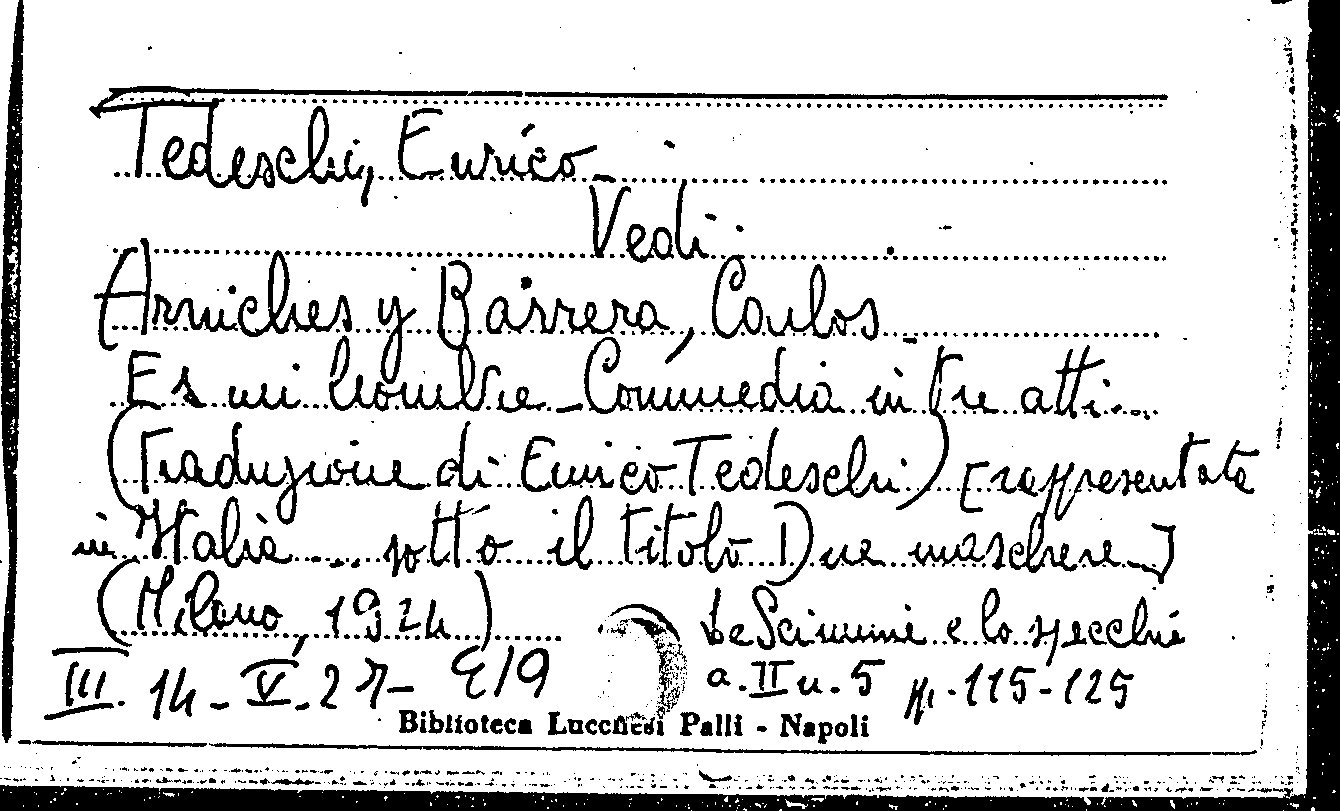 Tedeschi, Enrico -
Vedi:
Arniches y Barrera, Carlos
Es mi hombre - Commedia in tre atti...
(Traduzione di Enrico Tedeschi) [rappresentata
in Italia ... sotto il titolo Due maschere -]
(Milano, 1924)
Le Scimmie e lo specchio
III. 14 - V. 27 - (19
a. II n. 5 pp. 115-125
Biblioteca Lucchesi Palli - Napoli